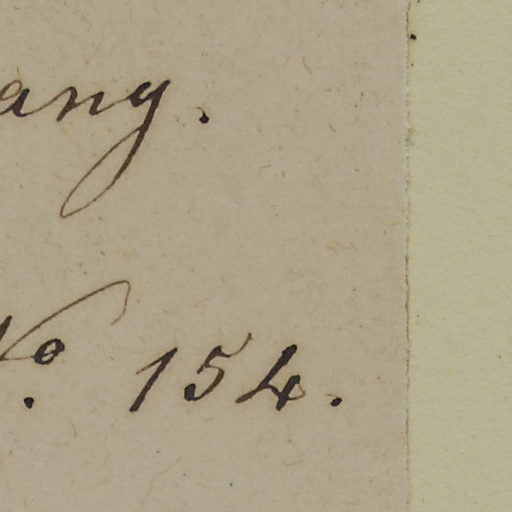 ang.
No. 154.